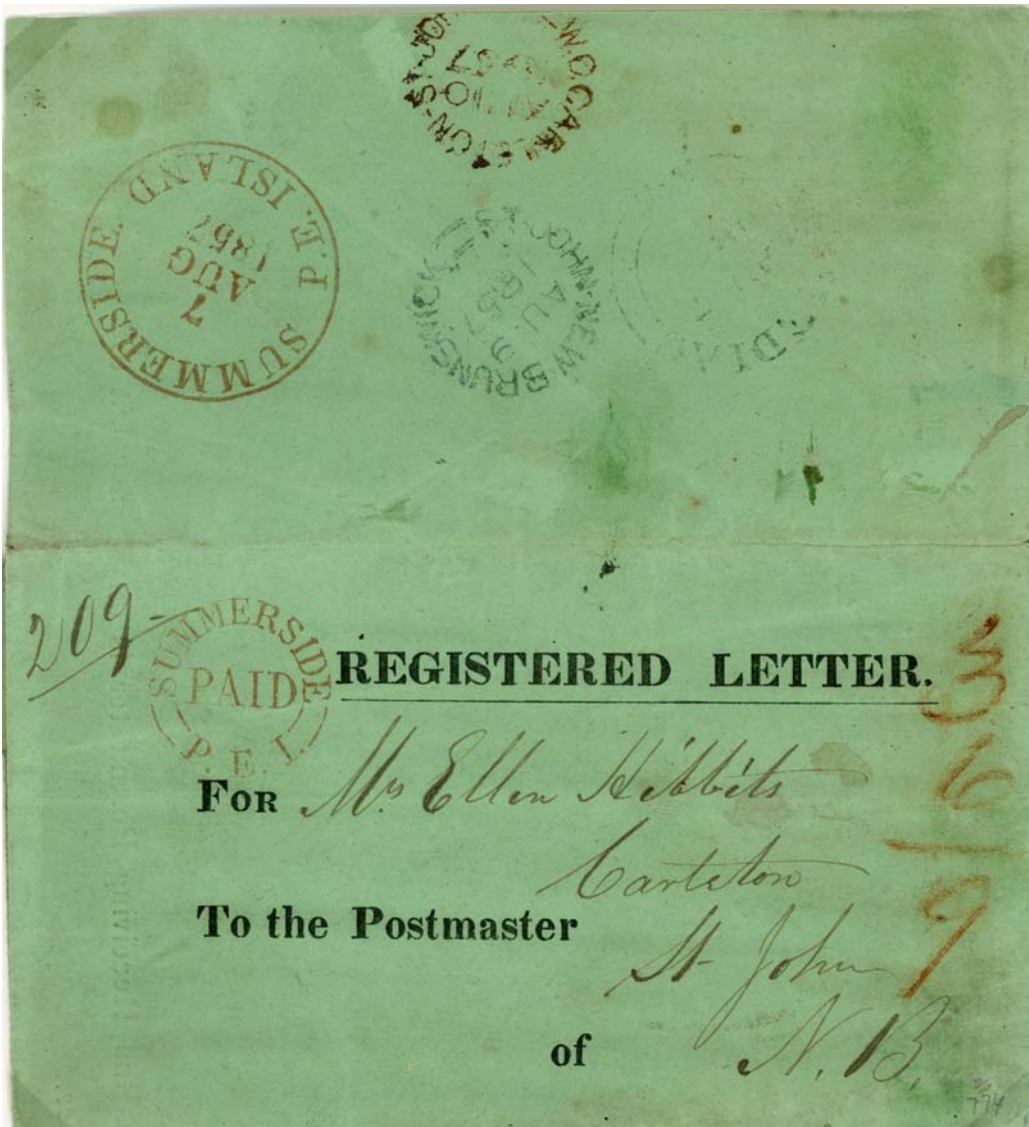 W.O. CARLETON-ST. JOHN
SUMMERSIDE. P.E. ISLAND
7
AUG
1857
ST. JOHN-NEW BRUNSWICK
AU
209-
SUMMERSIDE
PAID
P. E. I.
REGISTERED LETTER.
3
6
9
FOR Mrs Ellen Hibbits
Carleton
To the Postmaster
St John
of N. B.
774